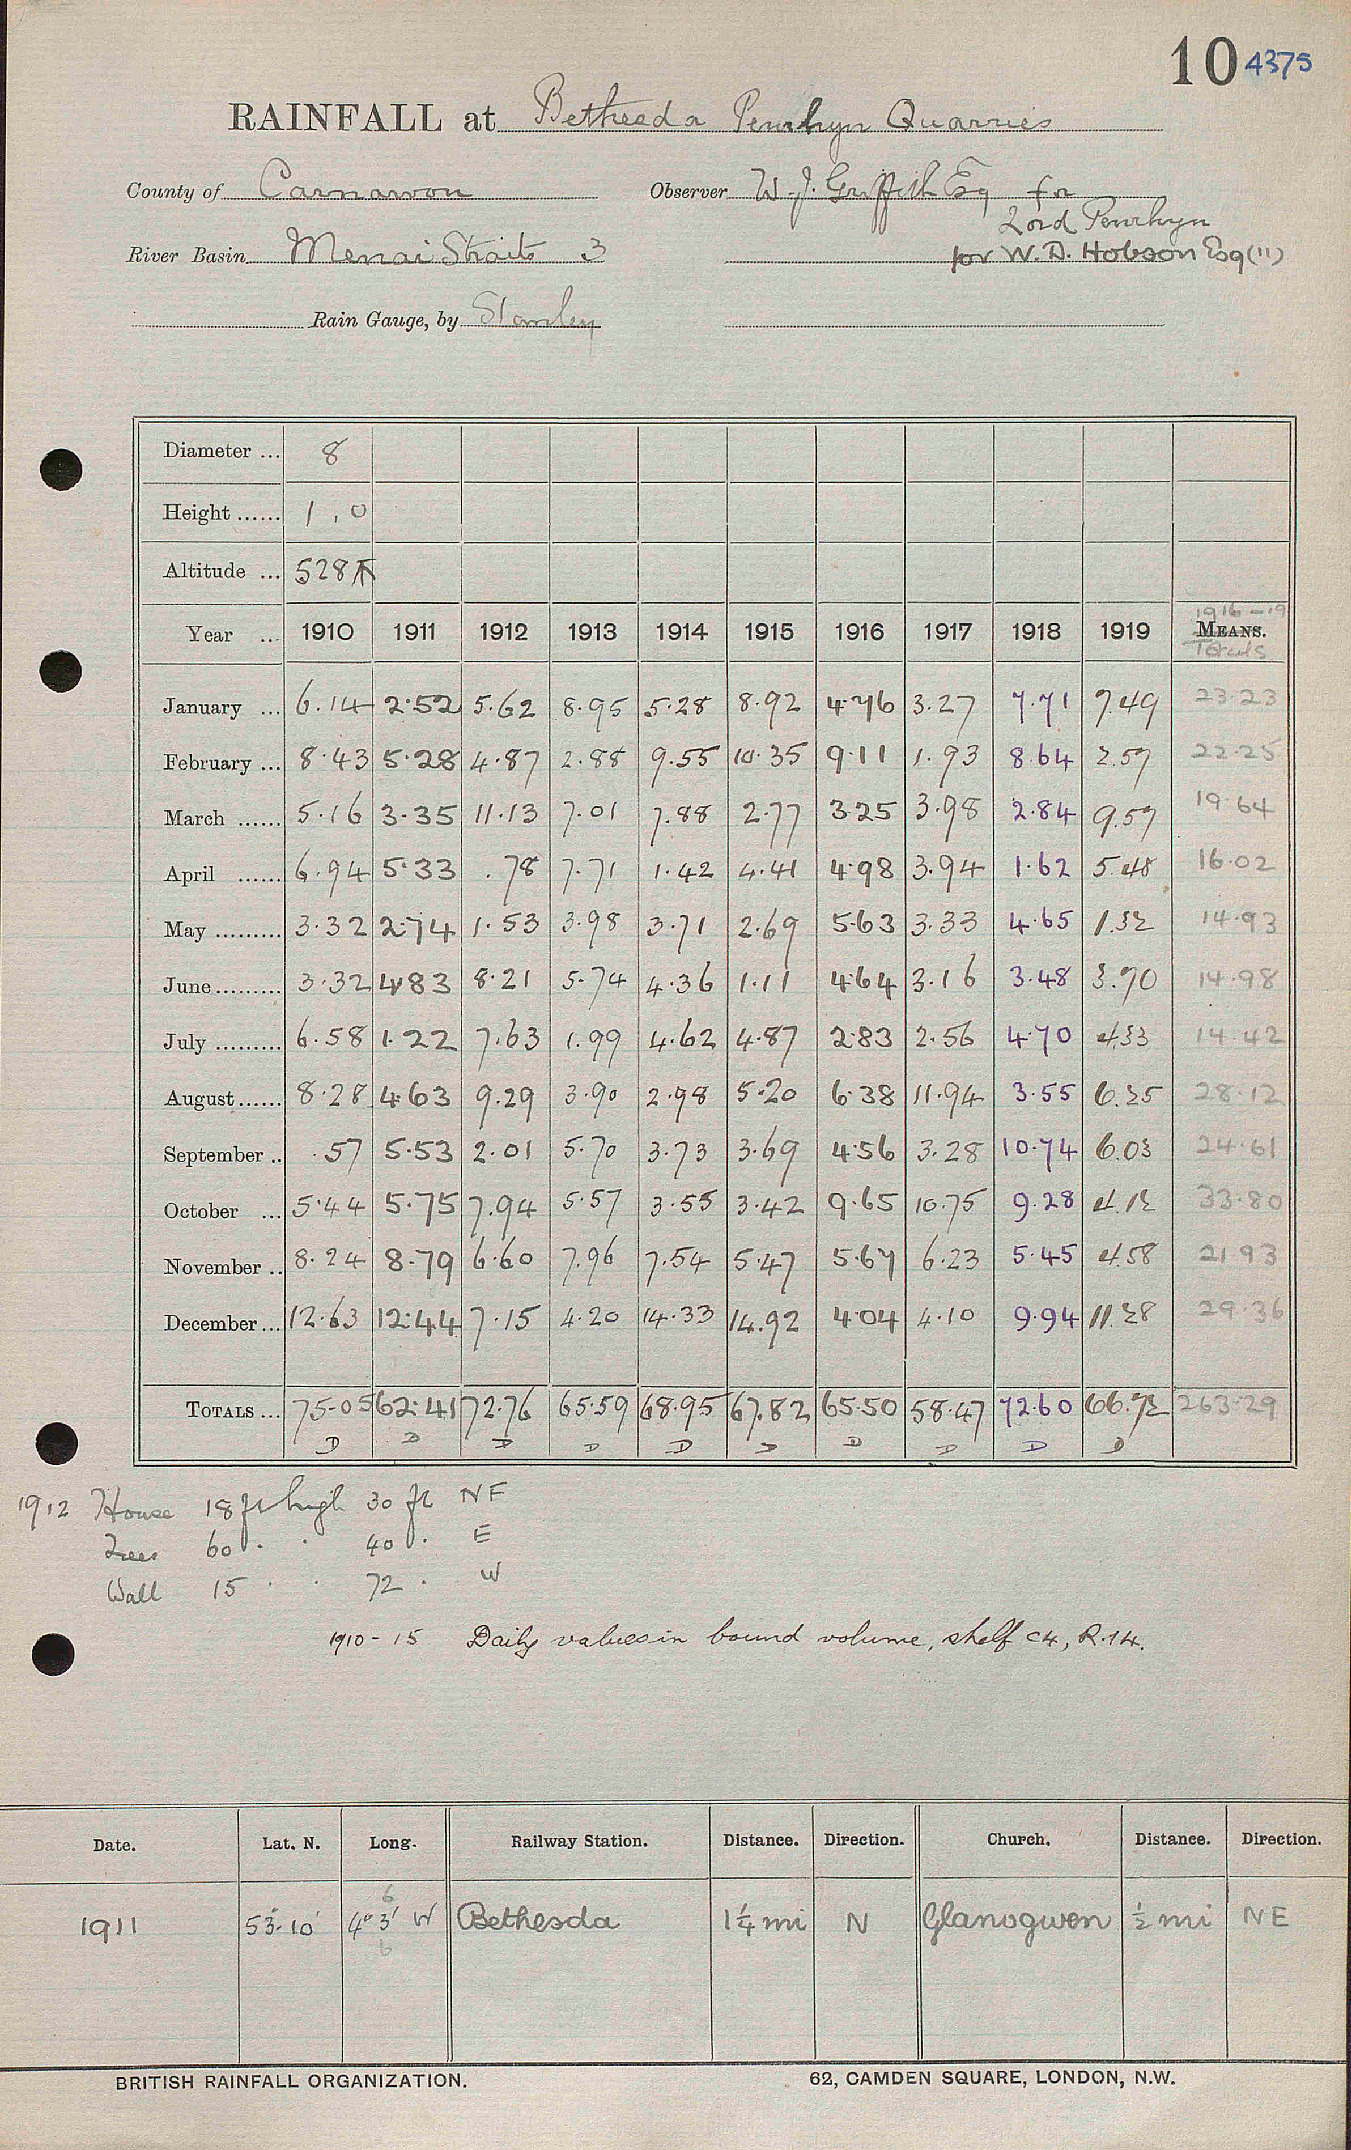 10 4375
RAINFALL at Bethesda Penrhyn Quarries
County of Carnarvon Observer W. J. Griffith Esq for
Lord Penrhyn
River Basin Menai Straits 3 for W. D. Hobson Esq (11)
Rain Gauge, by Stanley
Diameter ... 8
Height ...... 1.0
Altitude ... 528 T
1916-19
Year ... 1910 1911 1912 1913 1914 1915 1916 1917 1918 1919 MEANS.
Totals
January ... 6.14 2.52 5.62 8.95 5.28 8.92 4.76 3.27 7.71 7.49 23.23
February ... 8.43 5.28 4.87 2.88 9.55 10.35 9.11 1.93 8.64 2.57 22.25
March ...... 5.16 3.35 11.13 7.01 7.88 2.77 3.25 3.98 2.84 9.57 19.64
April ...... 6.94 5.33 .78 7.71 1.42 4.41 4.98 3.94 1.62 5.48 16.02
May ......... 3.32 2.74 1.53 3.98 3.71 2.69 5.63 3.33 4.65 1.32 14.93
June ......... 3.32 4.83 8.21 5.74 4.36 1.11 4.64 3.16 3.48 3.70 14.98
July ......... 6.58 1.22 7.63 1.99 4.62 4.87 2.83 2.56 4.70 4.33 14.42
August ...... 8.28 4.63 9.29 3.90 2.98 5.20 6.38 11.94 3.55 6.25 28.12
September .. .57 5.53 2.01 5.70 3.73 3.69 4.56 3.28 10.74 6.03 24.61
October ... 5.44 5.75 7.94 5.57 3.55 3.42 9.65 10.75 9.28 4.12 33.80
November .. 8.24 8.79 6.60 7.96 7.54 5.47 5.67 6.23 5.45 4.58 21.93
December ... 12.63 12.44 7.15 4.20 14.33 14.92 4.04 4.10 9.94 11.28 29.36
TOTALS ... 75.05 62.41 72.76 65.59 68.95 67.82 65.50 58.47 72.60 66.72 263.29
D D D D D D D D D D
1912 House 18 ft high 30 ft NE
Trees 60 . . 40 . E
Wall 15 . . 72 . W
1910-15 Daily values in bound volume, shelf C4, R.14.
Date. Lat. N. Long. Railway Station. Distance. Direction. Church. Distance. Direction.
6
1911 53° 10' 4° 3' W Bethesda 1¼ mi N Glanogwen ½ mi NE
6
BRITISH RAINFALL ORGANIZATION. 62, CAMDEN SQUARE, LONDON, N.W.